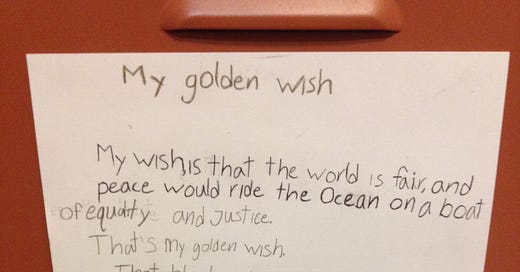 My golden wish
My wish, is that the world is fair, and
peace would ride the Ocean on a boat
of equality and justice.
That's my golden wish.